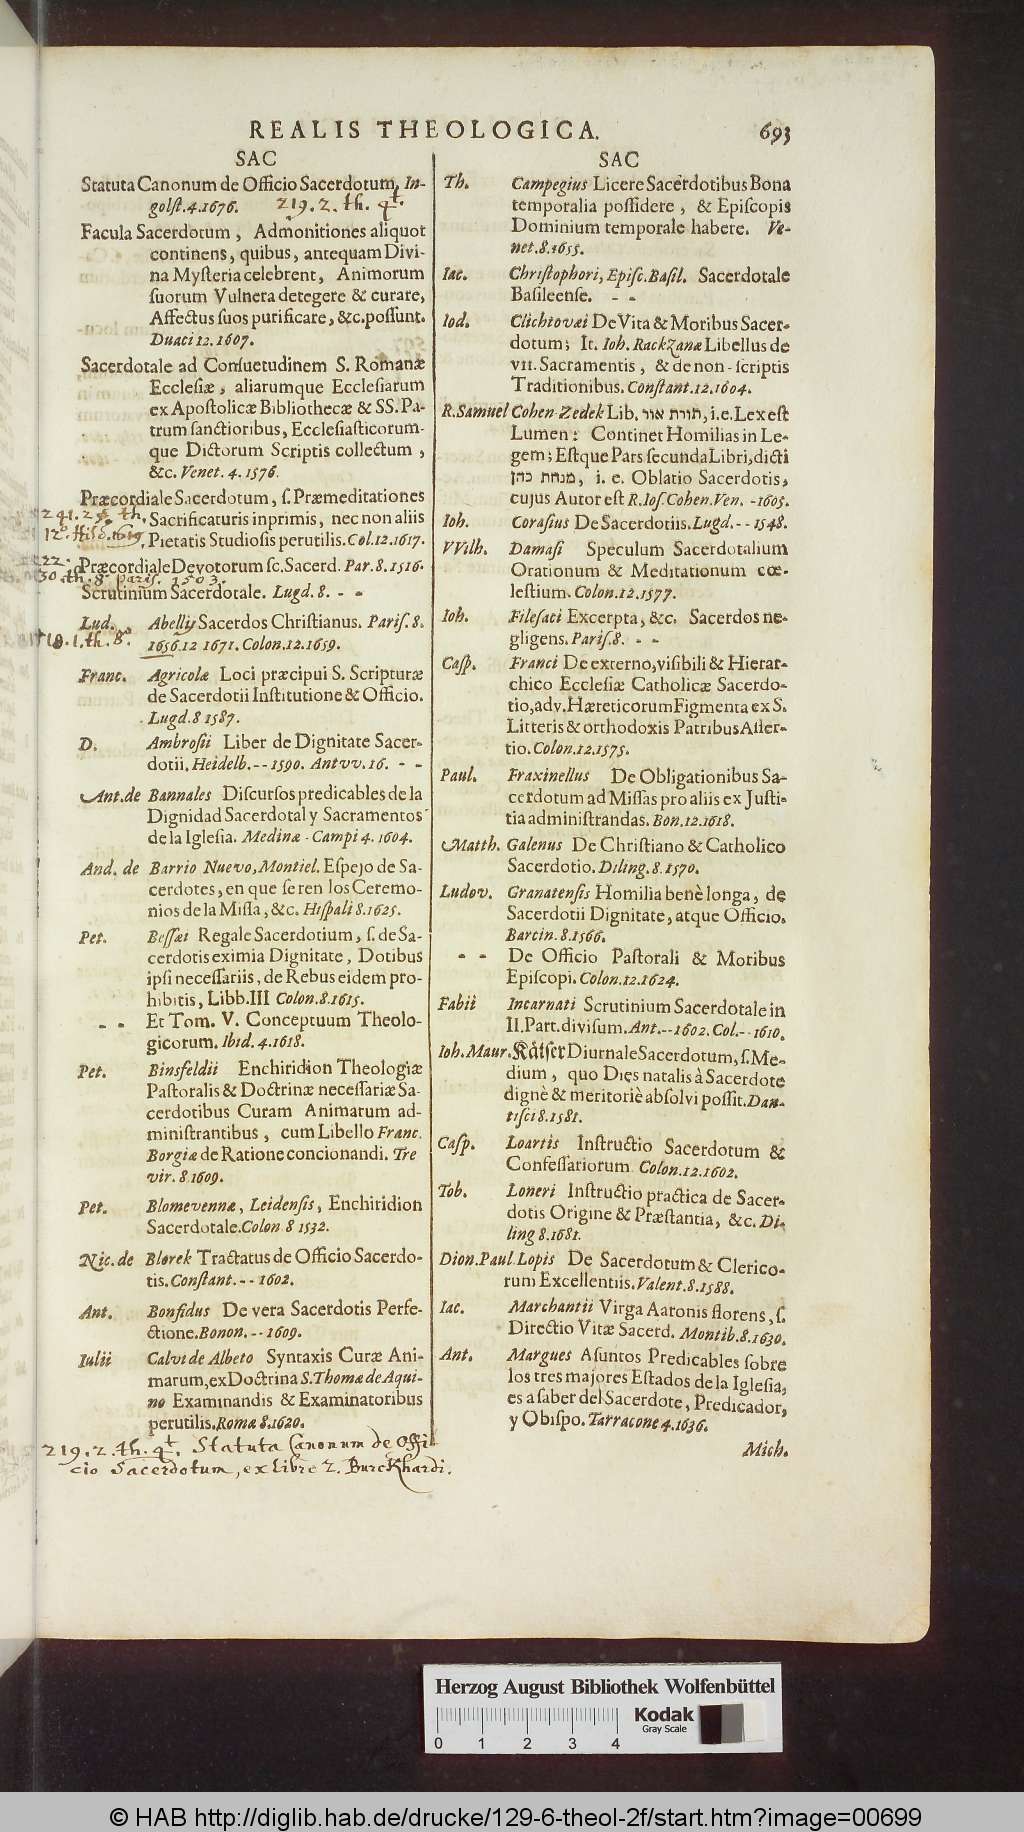 REALIS THEOLOGICA. 693
SAC
Statuta Canonum de Officio Sacerdotum, In-
golſt. 4. 1676. 219. 2. th. 4t.
Facula Sacerdotum, Admonitiones aliquot
continens, quibus, antequam Divi-
na Myſteria celebrent, Animorum
ſuorum Vulnera detegere & curare,
Affectus ſuos purificare, &c. poſſunt.
Duaci 12. 1607.
Sacerdotale ad Conſuetudinem S. Romanæ
Eccleſiæ, aliarumque Eccleſiarum
ex Apoſtolicæ Bibliothecæ & SS. Pa-
trum ſanctioribus, Eccleſiaſticorum-
que Dictorum Scriptis collectum,
&c. Venet. 4. 1576.
Præcordiale Sacerdotum, ſ. Præmeditationes
Sacrificaturis inprimis, nec non aliis
Pietatis Studioſis perutilis. Col. 12. 1617.
Præcordiale Devotorum ſc. Sacerd. Par. 8. 1516.
30. th. 8. paris. 1503.
Scrutinium Sacerdotale. Lugd. 8. - -
Lud. Abellij Sacerdos Chriſtianus. Pariſ. 8.
1656. 12 1671. Colon. 12. 1659.
Franc. Agricolæ Loci præcipui S. Scripturæ
de Sacerdotii Inſtitutione & Officio.
Lugd. 8 1587.
D. Ambroſii Liber de Dignitate Sacer-
dotii. Heidelb. - - 1590. Antvv. 16. - -
Ant. de Bannales Diſcurſos predicables de la
Dignidad Sacerdotal y Sacramentos
de la Igleſia. Medinæ - Campi 4. 1604.
And. de Barrio Nuevo, Montiel. Eſpejo de Sa-
cerdotes, en que ſe ren los Ceremo-
nios de la Miſſa, &c. Hiſpali 8. 1625.
Pet. Beſſæi Regale Sacerdotium, ſ. de Sa-
cerdotis eximia Dignitate, Dotibus
ipſi neceſſariis, de Rebus eidem pro-
hibitis, Libb. III Colon. 8. 1615.
- - Et Tom. V. Conceptuum Theolo-
gicorum. Ibid. 4. 1618.
Pet. Binsfeldii Enchiridion Theologiæ
Paſtoralis & Doctrinæ neceſſariæ Sa-
cerdotibus Curam Animarum ad-
miniſtrantibus, cum Libello Franc.
Borgiæ de Ratione concionandi. Tre
vir. 8. 1609.
Pet. Blomevennæ, Leidenſis, Enchiridion
Sacerdotale. Colon 8 1532.
Nic. de Blorek Tractatus de Officio Sacerdo-
tis. Conſtant. - - 1602.
Ant. Bonfidus De vera Sacerdotis Perfe-
ctione. Bonon. - - 1609.
Iulii Calvi de Albeto Syntaxis Curæ Ani-
marum, ex Doctrina S. Thomæ de Aqui-
no Examinandis & Examinatoribus
perutilis. Romæ 8. 1620.
219. 2. th. 4t. Statuta Canonum de Offi-
cio Sacerdotum, ex libre 2. Burckhardi.
SAC
Th. Campegius Licere Sacerdotibus Bona
temporalia poſſidere, & Epiſcopis
Dominium temporale habere. Ve-
net. 8. 1655.
Iac. Chriſtophori, Epiſc. Baſil. Sacerdotale
Baſileenſe. - -
Iod. Clichtovæi De Vita & Moribus Sacer-
dotum; It. Ioh. Rackzanæ Libellus de
VII. Sacramentis, & de non-ſcriptis
Traditionibus. Conſtant. 12. 1604.
R. Samuel Cohen Zedek Lib. תורת אור, i.e. Lex eſt
Lumen: Continet Homilias in Le-
gem; Eſtque Pars ſecunda Libri, dicti
מנחת כהן, i. e. Oblatio Sacerdotis,
cujus Autor eſt R. Ioſ. Cohen. Ven. - 1605.
Ioh. Coraſius De Sacerdotiis. Lugd. - - 1548.
VVilh. Damaſi Speculum Sacerdotalium
Orationum & Meditationum cœ-
leſtium. Colon. 12. 1577.
Ioh. Fileſaci Excerpta, &c. Sacerdos ne-
gligens. Pariſ. 8. - -
Caſp. Franci De externo, viſibili & Hierar-
chico Eccleſiæ Catholicæ Sacerdo-
tio, adv. Hæreticorum Figmenta ex S.
Litteris & orthodoxis Patribus Aſſer-
tio. Colon. 12. 1575.
Paul. Fraxinellus De Obligationibus Sa-
cerdotum ad Miſſas pro aliis ex Juſti-
tia adminiſtrandas. Bon. 12. 1618.
Matth. Galenus De Chriſtiano & Catholico
Sacerdotio. Diling. 8. 1570.
Ludov. Granatenſis Homilia benè longa, de
Sacerdotii Dignitate, atque Officio.
Barcin. 8. 1566.
- - De Officio Paſtorali & Moribus
Epiſcopi. Colon. 12. 1624.
Fabii Incarnati Scrutinium Sacerdotale in
II. Part. diviſum. Ant. - - 1602. Col. - - 1610.
Ioh. Maur. Kätſer Diurnale Sacerdotum, ſ. Me-
dium, quo Dies natalis à Sacerdote
dignè & meritoriè abſolvi poſſit. Dan-
tiſci 8. 1581.
Caſp. Loartis Inſtructio Sacerdotum &
Confeſſariorum. Colon. 12. 1602.
Tob. Loneri Inſtructio practica de Sacer-
dotis Origine & Præſtantia, &c. Di-
ling 8. 1681.
Dion. Paul. Lopis De Sacerdotum & Clerico-
rum Excellentiis. Valent. 8. 1588.
Iac. Marchantii Virga Aaronis florens, ſ.
Directio Vitæ Sacerd. Montib. 8. 1630.
Ant. Margues Aſuntos Predicables ſobre
los tres majores Eſtados de la Igleſia,
es a ſaber del Sacerdote, Predicador,
y Obiſpo. Tarracone 4. 1636.
Mich.
Herzog August Bibliothek Wolfenbüttel
Kodak
Gray Scale
0 1 2 3 4
© HAB http://diglib.hab.de/drucke/129-6-theol-2f/start.htm?image=00699